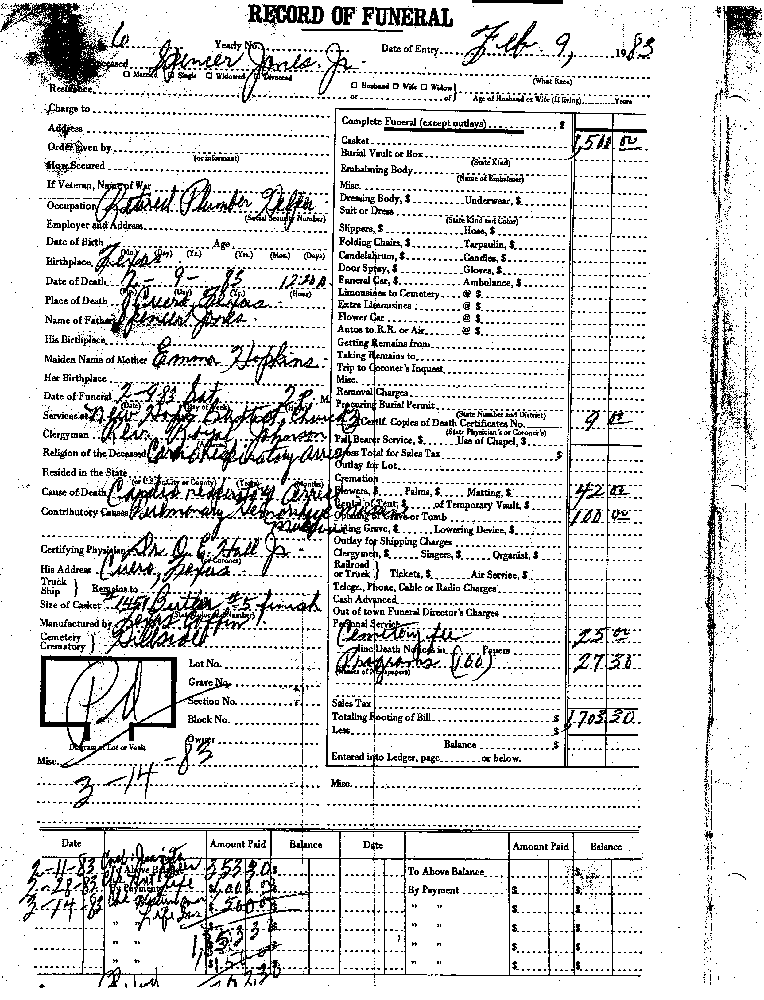 RECORD OF FUNERAL
6 Yearly No. Date of Entry Feb 9, 1983
Spencer Jones Jr.
☐ Married ☐ Single ☐ Widowed ☐ Divorced ☐ Husband ☐ Wife ☐ Widow (What Race)
Residence or of Age of Husband or Wife (If living) Years
Charge to
Address
Order given by
(or informant)
How Secured
If Veteran, Name of War
Occupation Retired Plumber Helper
(Social Security Number)
Employer and Address
Date of Birth Age
(Mo.) (Day) (Yr.) (Yrs.) (Mos.) (Days)
Birthplace Texas
Date of Death 2-9-83
(Mo.) (Day) (Yr.) (Hour)
Place of Death Cuero, Texas
Name of Father Spencer Jones
His Birthplace
Maiden Name of Mother Emma Hopkins
Her Birthplace
Date of Funeral Sat. 2 P. M.
(Date) (Day of Week) (Hour)
Services at New Hope Baptist Church
Clergyman Rev. Johnson
Religion of the Deceased Cardio respiratory arrest
Resided in the State
(or U.S., County or County) (Years) (Months)
Cause of Death Cardio respiratory arrest
Contributory Causes Pulmonary
Certifying Physician Dr. O. E. Hall Jr.
(or Coroner)
His Address Cuero, Texas
Truck Ship } Remains to
Size of Casket Butler #5 finish
Manufactured by Coffin
Cemetery Crematory } Hillside
Lot No.
Grave No.
Section No.
Block No.
Owner
Pd
Diagram of Lot or Vault
Misc.
3-14-83
Complete Funeral (except outlays) $
Casket 1,500 00
Burial Vault or Box
(State Kind)
Embalming Body
(Name of Embalmer)
Misc.
Dressing Body, $ Underwear, $
Suit or Dress
(State Kind and Color)
Slippers, $ Hose, $
Folding Chairs, $ Tarpaulin, $
Candelabrum, $ Candles, $
Door Spray, $ Gloves, $
Funeral Car, $ Ambulance, $
Limousines to Cemetery @ $
Extra Limousines @ $
Flower Car @ $
Autos to R.R. or Air @ $
Getting Remains from
Taking Remains to
Trip to Coroner's Inquest
Misc.
Removal Charges
Procuring Burial Permit
(State Number and District)
Certif. Copies of Death Certificates No. 9 00
(State Physician's or Coroner's)
Pall Bearer Service, $ Use of Chapel, $
Gross Total for Sales Tax $
Outlay for Lot
Cremation
Flowers, $ Palms, $ Matting, $ 42 00
Rental of Tent, $ of Temporary Vault, $
Opening of Grave or Tomb 100 00
Lining Grave, $ Lowering Device, $
Outlay for Shipping Charges
Clergymen, $ Singers, $ Organist, $
Railroad or Truck } Tickets, $ Air Service, $
Telegs., Phone, Cable or Radio Charges
Cash Advanced
Out of town Funeral Director's Charges
Personal Service
Cemetery fee 25 00
Death Notices in Papers
Programs (100) 27 30
(Names of Newspapers)
Sales Tax
Totaling Footing of Bill $ 1,703 30
Less $
Balance $
Entered into Ledger, page or below.
Misc.
Date Amount Paid Balance Date Amount Paid Balance
2-11-83 353 30 To Above Balance $ $
2-28-83 By Payment $ $
3-14-83 Life Ins. 500 " " $ $